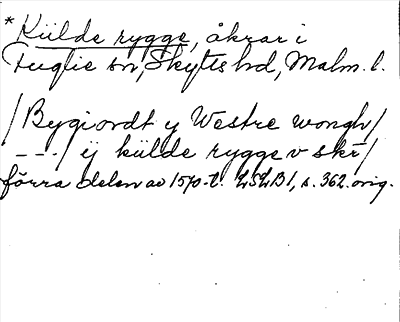 * Külde rygge, åkrar i
Fuglie sn, Skytts hd, Malm. l.
/Bygiordt y Westre wongh/
---/ ij külde rygge v skr/
förra delen av 1570-t. LSLB1, s. 362. orig.